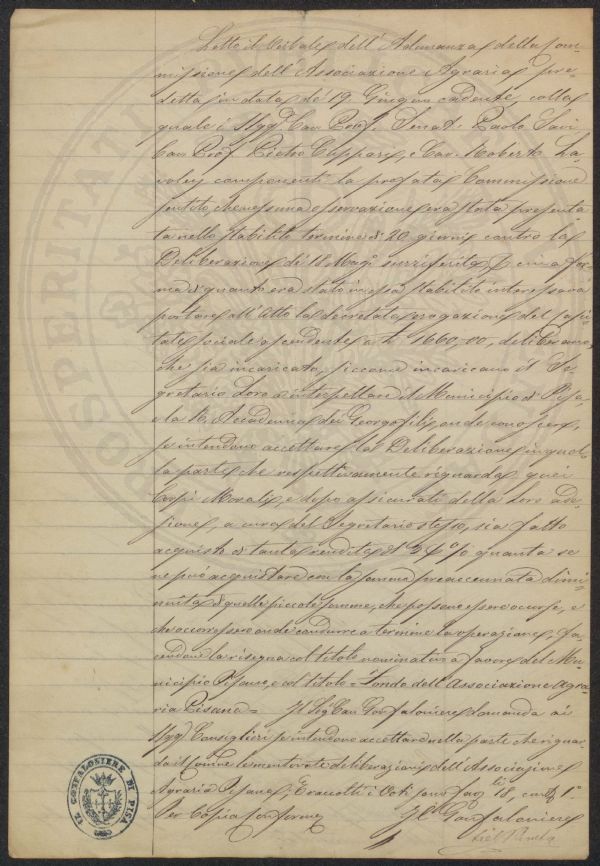 Letto il Verbale dell' Adunanza della Com=
missione dell' Associazione Agraria pre=
detta in data de' 19. Giugno cadente, colla
quale i Sigg.ri Cav. Prof. Senat. Paolo Savi
Cav. Prof. Pietro Cuppari, e Cav. Roberto La=
wley componenti la prefata Commissione
sentito, che nessuna osservazione era stata presenta=
ta nello stabilito termine di 20 giorni contro la
Deliberazione di 18 Mag.o
ma di quanto era stato in essa stabilito interessava
portare all' Atto la decretata erogazione del Capi=
tale sociale ascendente a £ 1660,00, deliberano,
che sia incaricato, siccome incaricano il Se=
gretario Loro a interpellare il Municipio di Pisa,
e la R. Accademia dei Georgofili, onde conoscere,
se intendono accettare la Deliberazione in quel=
la parte, che respettivamente riguarda quei
Corpi Morali, e dopo assicurati della loro ade=
sione, a cura del Segretario stesso, sia fatto
acquisto di tanta rendita al 5 p% quanta se
ne può acquistare con la somma preaccennata dimi=
nuita di quelle piccole somme, che possono essere occorse, e
che occorressero onde condurre a termine la operazione, fa=
cendone la
nicipio Pisano, e col titolo = Fondo dell' Associazione Agra=
ria Pisana = Il Sig.r Cav. Gonfaloniere domanda ai
Sigg.ri Consiglieri se intendono accettare nella parte che riguar=
da il Comune le mentovate deliberazioni dell' Associazione
Agraria Pisana. Raccolti i Voti sono fav.li 18, cont. 1.
Per Copia Conforme
Il Gonfaloniere
IL GONFALONIERE DI PISA
PROSPERITA